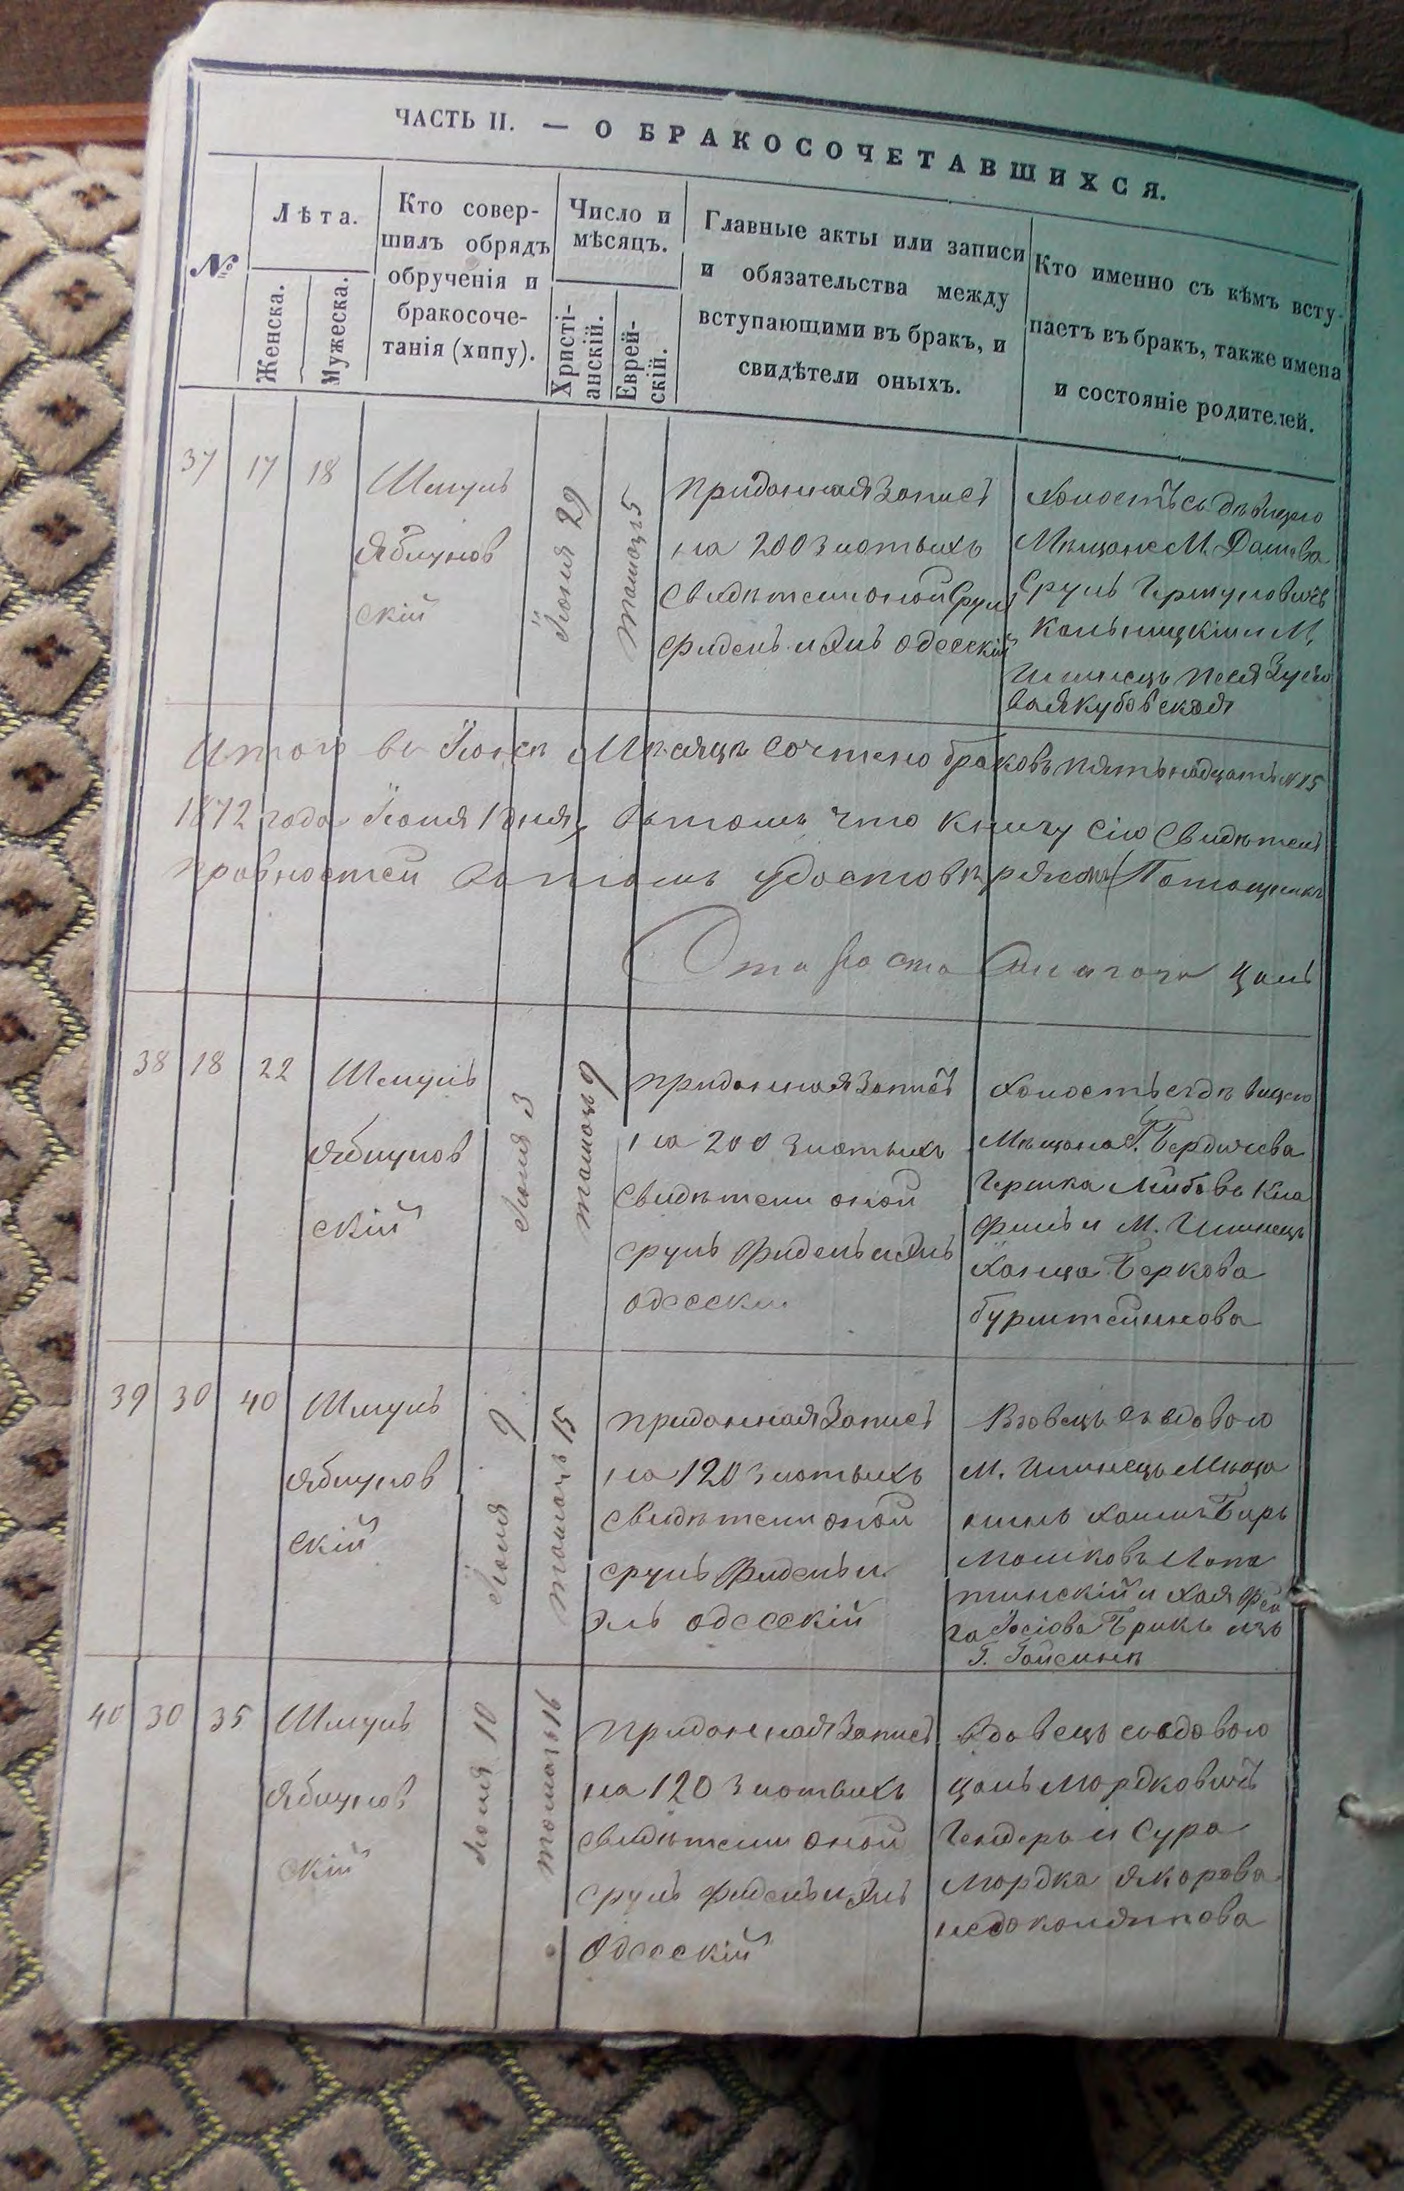 ЧАСТЬ II. — О БРАКОСОЧЕТАВШИХСЯ.
№
Лѣта.
Женска.
Мужеска.
Кто совер-
шилъ обрядъ
обрученія и
бракосоче-
танія (хппу).
Число и
мѣсяцъ.
Христі-
анскій.
Еврей-
скій.
Главные акты или записи
и обязательства между
вступающими въ бракъ, и
свидѣтели оныхъ.
Кто именно съ кѣмъ всту-
паетъ въ бракъ, также имена
и состояніе родителей.
37 17 18
Шмуль
Яблунов
скій
Іюня 29
тамоцъ 5
Приданная Запись
на 200 злотыхъ
Свидѣтели оной Сруль
Фидель и Эль Одесскій
Холостъ съ дѣвицею
Мѣщане М. Дашева
Сруль Гершуновичъ
Кальницкій и М.
Илинецъ Песя Зусѣ
ва Якубовская
Итого въ Іюнѣ Мѣсяцѣ сочтено браковъ пятьнадцать № 15
1872 года Іюля 1 дня, въ томъ что книгу сію Свидѣтел
Староста
Цаль
38 18 22
Шмуль
Яблунов
скій
Іюля 3
тамоцъ 9
Приданная Запись
на 200 злотыхъ
Свидѣтели оной
Сруль Фидель и Эль
Одесски.
Холостъ съ дѣвицею
Мѣщане Г. Бердичева
Гершка Лейбовъ Кла
и М. Илинецъ
Ханца Беркова
Бурштейнова
39 30 40
Шмуль
Яблунов
скій
Іюля 9
тамоцъ 15
Приданная Запись
на 120 злотыхъ
Свидѣтели оной
Сруль Фидель и
Эль Одесскій
Вдовецъ съ вдовою
М. Илинецъ Мѣща
нинъ Хаимъ Беръ
Мошковъ Лопа
тинскій и Хая Фей
га Іосіова Брикъ изъ
Г. Гайсинъ
40 30 35
Шмуль
Яблунов
скій
Іюля 10
тамоцъ 16
Приданная Запись
на 120 злотыхъ
Свидѣтели оной
Сруль Фидель и Эль
Одесскій
Вдовецъ со вдовою
Цаль Мордковичъ
и Сура
Мордка